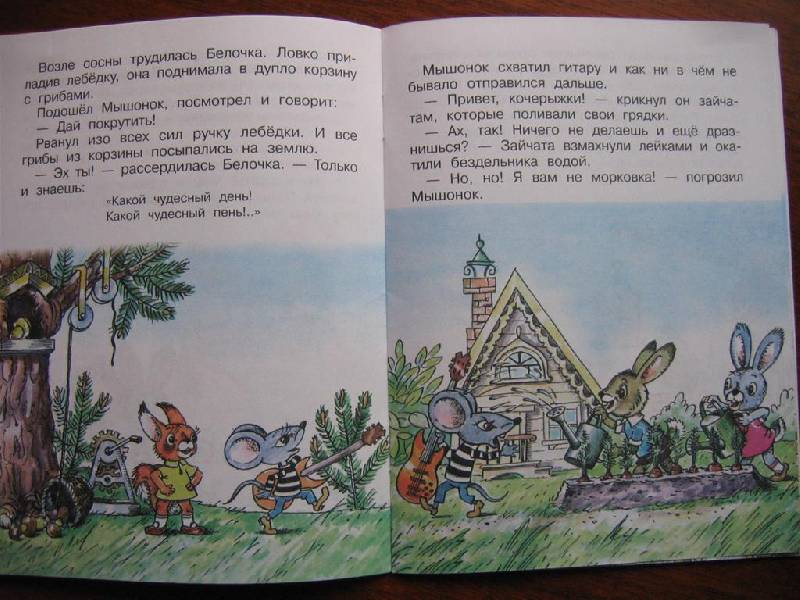 Возле сосны трудилась Белочка. Ловко при-
ладив лебёдку, она поднимала в дупло корзину
с грибами.
Подошёл Мышонок, посмотрел и говорит:
— Дай покрутить!
Рванул изо всех сил ручку лебёдки. И все
грибы из корзины посыпались на землю.
— Эх ты! — рассердилась Белочка. — Только
и знаешь:
«Какой чудесный день!
Какой чудесный пень!..»
Мышонок схватил гитару и как ни в чём не
бывало отправился дальше.
— Привет, кочерыжки! — крикнул он зайча-
там, которые поливали свои грядки.
— Ах, так! Ничего не делаешь и ещё драз-
нишься? — Зайчата взмахнули лейками и ока-
тили бездельника водой.
— Но, но! Я вам не морковка! — погрозил
Мышонок.